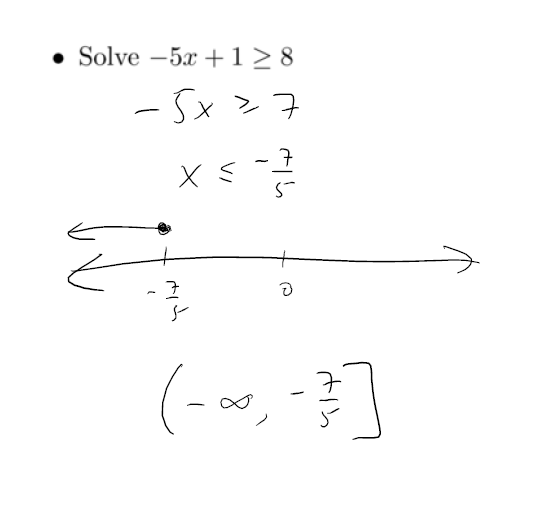 • Solve −5x + 1 ≥ 8
−5x ≥ 7
x ≤ −7/5
−7/5 0
(−∞, −7/5]